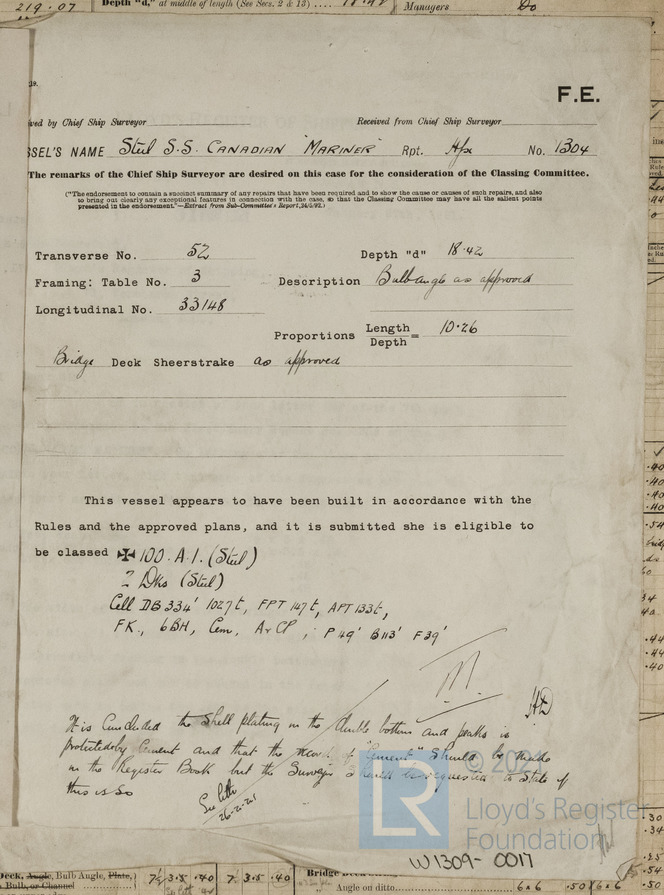 219.07 Depth "d," at middle of length (See Secs. 2 & 13) .... 18.42 Managers Do
F.E.
ved by Chief Ship Surveyor Received from Chief Ship Surveyor
SSEL'S NAME Steel S.S. CANADIAN MARINER Rpt. Hfx No. 1304
The remarks of the Chief Ship Surveyor are desired on this case for the consideration of the Classing Committee.
("The endorsement to contain a succinct summary of any repairs that have been required and to show the cause or causes of such repairs, and also
to bring out clearly any exceptional features in connection with the case, so that the Classing Committee may have all the salient points
presented in the endorsement."—Extract from Sub-Committee's Report, 24/5/92.)
Transverse No. 52 Depth "d" 18.42
Framing: Table No. 3 Description Bulb angle as approved
Longitudinal No. 33148
Proportions Length
Depth = 10.26
Bridge Deck Sheerstrake as approved
This vessel appears to have been built in accordance with the
Rules and the approved plans, and it is submitted she is eligible to
be classed ✠ 100.A.1. (Steel)
2 Dks (Steel)
Cell DB 334' 1027t, FPT 147t, APT 133t,
FK., 6BH, Cem, A&CP; P 49' B113' F39'
It is concluded the shell plating in the double bottom and peaks is
protected by Cement and that the record of "Cement" should be made
in the Register Book but the Surveyor should be requested to State if
this is so
See letter
26-2-21
© 2021
LR
Lloyd's Register
Foundation
W1309-0017
Deck, Angle, Bulb Angle, Plate, 7½ 3.5 .40 7½ 3.5 .40 Bridge
Bulb, or Channel
Angle on ditto 6 x 6 .50 6 x 6